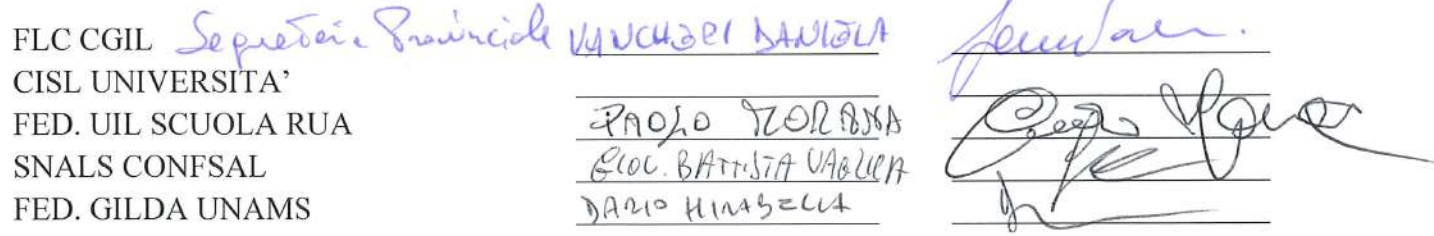 FLC CGIL Segreteria Provinciale VANCHERI DANIELA
CISL UNIVERSITA’
FED. UIL SCUOLA RUA PAOLO MORANA
SNALS CONFSAL GIOV. BATTISTA
FED. GILDA UNAMS DARIO MIRABELLA